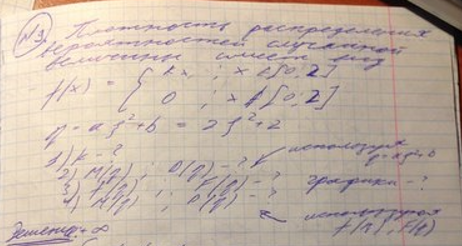 №3 Плотность распределения
вероятностей случайной
величины имеет вид
f(x) = { kx ; x ∈ [0; 2]
0 ; x ∉ [0; 2]
η = aξ²+b = 2ξ²+2
1) k - ?
2) M(η) ; D(η) - ? используя
η = aξ²+b
3) f(η) ; F(η) - ? графики - ?
4) M(η) ; D(η) - ? используя
f(η), F(η)
Решение: + ∞